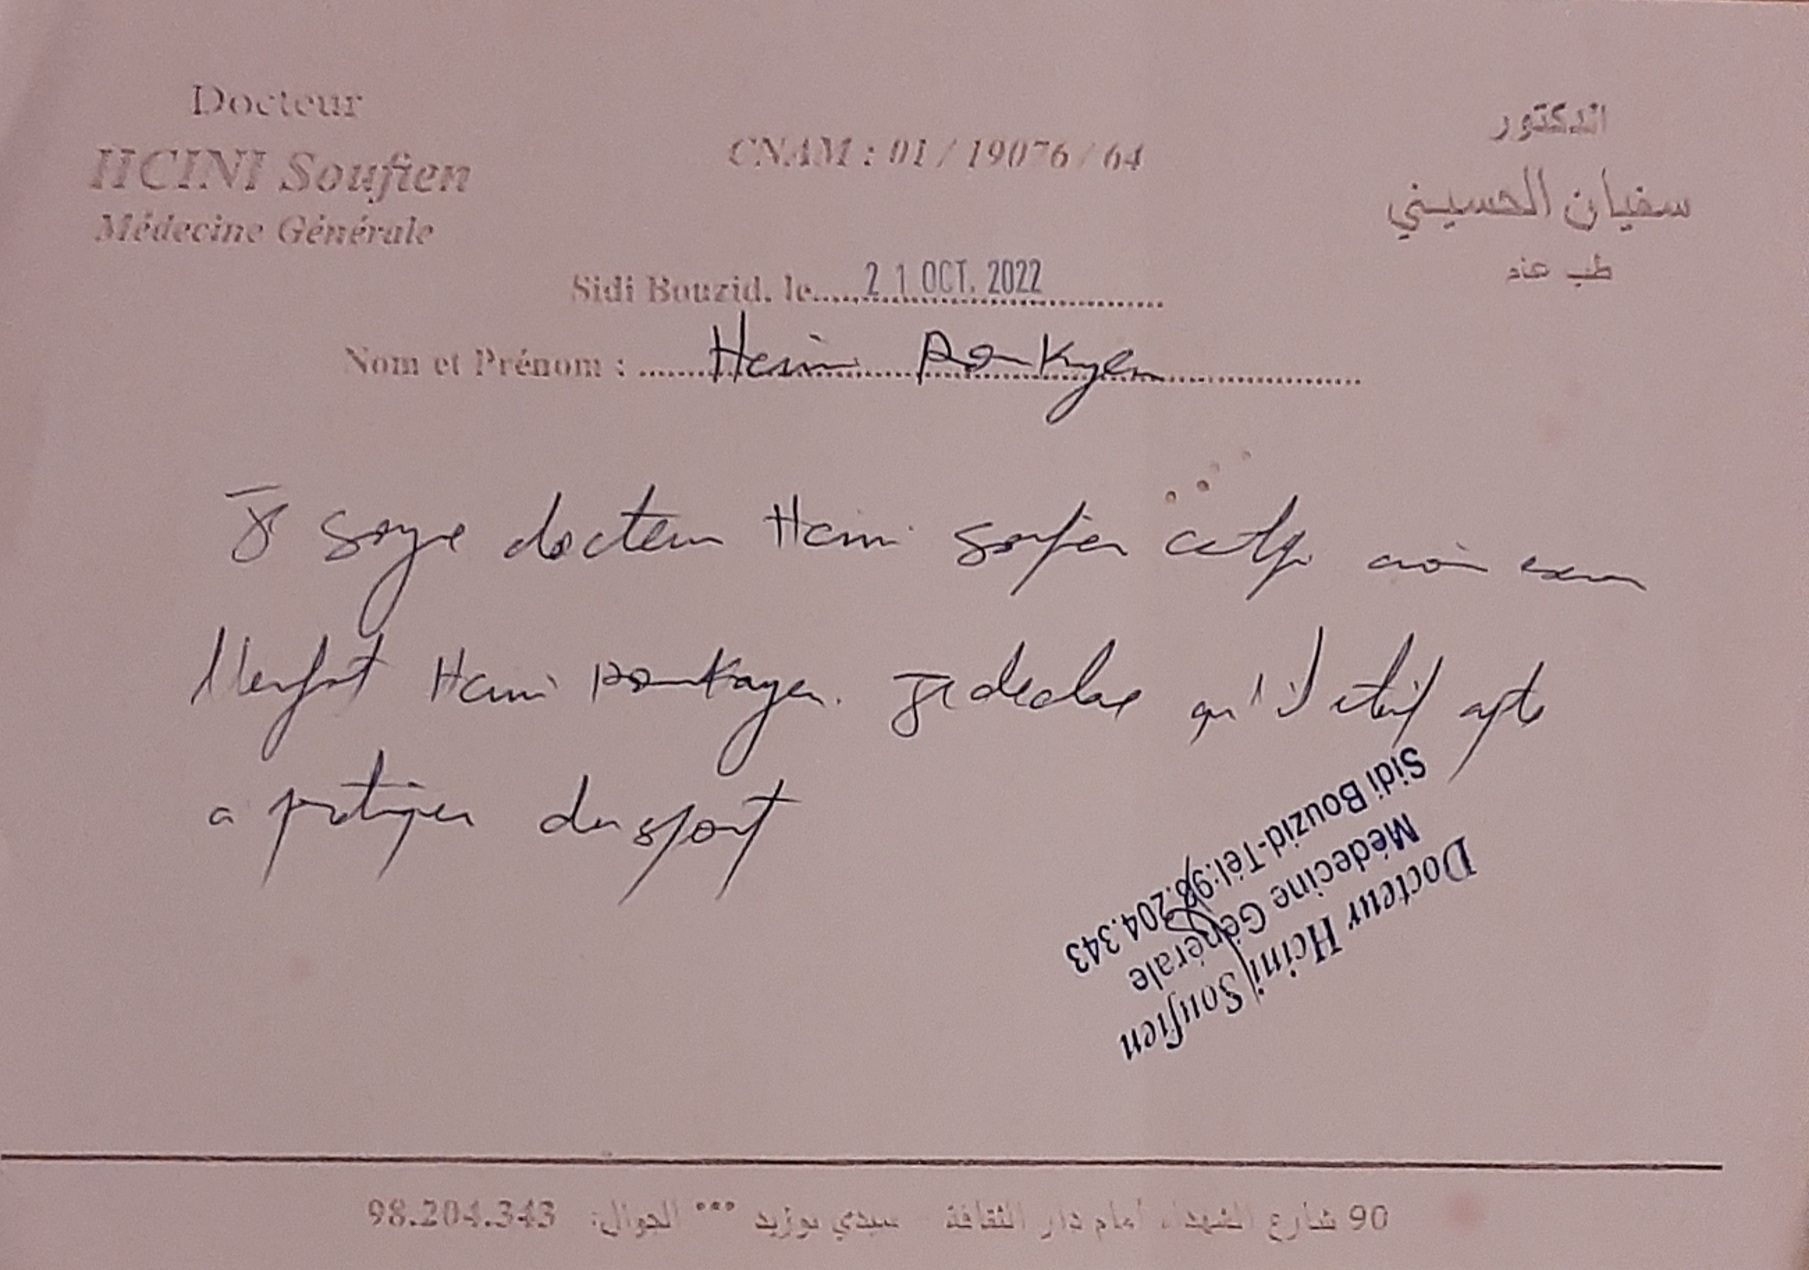 Docteur
HCINI Soufien
Médecine Générale
CNAM : 01 / 19076 / 64
الدكتور
سفيان الحسيني
طب عام
Sidi Bouzid, le 21 OCT. 2022
Nom et Prénom : Hcini
docteur Hcini Soufien
l'enfant Hcini Je declare qu'il etait apte
a pratiquer du sport
Docteur Hcini Soufien
Médecine Générale
Sidi Bouzid-Tél:98.204.343
90 شارع الشهداء أمام دار الثقافة - سيدي بوزيد *** الجوال: 98.204.343